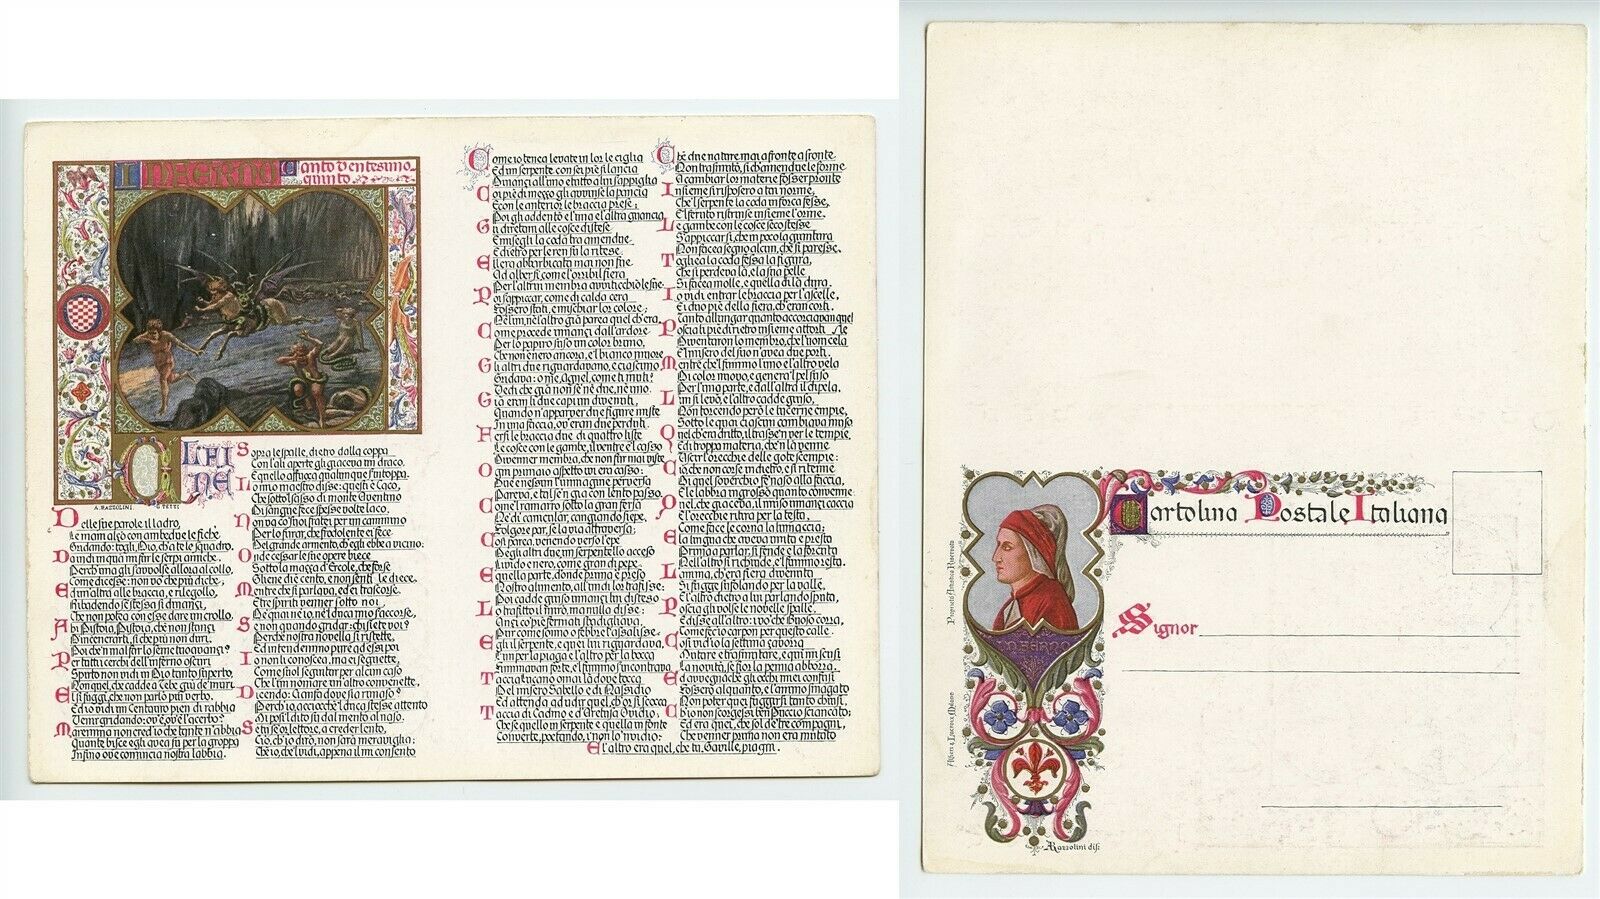 INFERNO Canto Ventesimo
quinto
AL FINE
A. RAZZOLINI. G. TETTI
Delle sue parole il ladro,
Le mani alzò con ambedue le fiche
Gridando: togli, Dio, ch'a te le squadro.
Da indi in qua mi fur le serpi amiche,
Perch'una gli s'avvolse allora al collo,
Come dicesse: non vo' che più diche;
Ed un'altra alle braccia, e rilegollo,
Ribadendo se stessa sì dinanzi,
Che non potea con esse dare un crollo.
Ahi Pistoia, Pistoia, chè non stanzi
D'incenerarti, sì che più non duri,
Poi che'n mal far lo seme tuo avanzi?
Per tutti i cerchi dell'inferno oscuri
Spirto non vidi in Dio tanto superbo,
Non quel, che cadde a Tebe giù de' muri.
Ei si fuggì, che non parlò più verbo.
Ed io vidi un Centauro pien di rabbia
Venir gridando: ov'è, ov'è l'acerbo?
Maremma non cred'io che tante n'abbia
Quante bisce egli avea su per la groppa
Infino ove comincia nostra labbia.
Sopra le spalle, dietro dalla coppa
Con l'ali aperte gli giaceva un draco,
E quello affuoca qualunque s'intoppa.
Lo mio maestro disse: questi è Caco,
Che sotto l sasso di monte Aventino
Di sangue fece spesse volte laco.
Non va co' suoi fratei per un cammino
Per lo furar, che frodolente ei fece
Del grande armento, ch'egli ebbe a vicino:
Onde cessar le sue opere biece
Sotto la mazza d'Ercole, che forse
Gliene diè cento, e non sentì le diece.
Mentre che sì parlava, ed ei trascorse,
E tre spiriti venner sotto noi,
De' quai nè io, nè l duca mio s'accorse,
Se non quando gridar: chi siete voi?
Perchè nostra novella si ristette,
Ed intendemmo pure ad essi poi
Io non li conoscea, ma ei seguette,
Come suol seguitar per alcun caso
Che l'un nomare un'altro convenette,
Dicendo: Cianfa dove fia rimaso?
Perch'io, acciocchè l duca stesse attento
Mi posi l dito su dal mento al naso.
Se tu se' or, lettore, a creder lento,
Ciò, ch'io dirò, non sarà meraviglia:
Che io, che l vidi, appena il mi consento
Come io tenea levate in lor le ciglia
Ed un serpente con sei piè si lancia
Dinanzi all'uno e tutto a lui s'appiglia
Co' piè di mezzo gli avvinse la pancia
E con le anterior le braccia prese;
Poi gli addentò e l'una e l'altra guancia
Gli diretani alle cosce distese
E misegli la coda tra amendue
E dietro per le ren su la ritese.
Ellera abbarbicata mai non fue
Ad alber sì, come l'orribil fiera
Per l'altrui membra avviticchiò le sue
Poi s'appiccar, come di calda cera
Fossero stati, e mischiar lor colore;
Nè l'un, nè l'altro già parea quel ch'era.
Come procede innanzi dall'ardore
Per lo papiro suso un color bruno,
Che non è nero ancora, e l bianco muore
Gli altri due riguardavano, e ciascuno
Gridava: o me, Agnel, come ti muti!
Vedi che già non se' nè due, nè uno
Già eran li due capi un divenuti,
Quando n'apparver due figure miste
In una faccia, ov'eran due perduti.
Fersi le braccia due di quattro liste
Le cosce con le gambe, il ventre e l casso
Divenner membra, che non fur mai viste
Ogni primaio aspetto ivi era casso:
Due e nessun l'immagine perversa
Parea, e tal sen gìa con lento passo.
Come l ramarro sotto la gran fersa
Ne' dì canicular, cangiando siepe,
Folgore par, se la via attraversa:
Così parea, venendo verso l'epe
Degli altri due, un serpentello acceso
Livido e nero, come gran di pepe.
E quella parte, donde prima è preso
Nostro alimento, all'un di lor trafisse:
Poi cadde giuso innanzi lui disteso
Lo trafitto il mirò, ma nulla disse:
Anzi co' piè fermati sbadigliava,
Pur come sonno o febbre l'assalisse.
Egli il serpente, e quei lui riguardava,
L'un per la piaga e l'altro per la bocca
Fummavan forte, e l fummo s'incontrava
Taccia Lucano omai là dove tocca
Del misero Sabello e di Nassidio
Ed attenda ad udir quel, ch'or si scocca
Taccia di Cadmo e d'Aretusa Ovidio;
Che se quello in serpente e quella in fonte
Converte, poetando, i' non lo 'nvidio:
Chè due nature mai a fronte a fronte
Non trasmutò, sì ch'amendue le forme
A cambiar lor materie fosser pronte
Insieme si risposero a tai norme,
Che l serpente la coda in forca fesse,
E l feruto ristrinse insieme l'orme.
Le gambe con le cosce seco stesse
S'appiccar sì, che in poco la giuntura
Non facea segno alcun, che si paresse.
Togliea la coda fessa la figura,
Che si perdeva là, e la sua pelle
Si facea molle, e quella di là dura.
Io vidi entrar le braccia per l'ascelle,
E i duo piè della fiera, ch'eran corti,
Tanto allungar quanto accorciavan quelle
Poscia li piè dirietro insieme attorti
Diventaron lo membro, che l'uom cela
E l misero del suo n'avea due porti.
Mentre che l fummo l'uno e l'altro vela
Di color nuovo, e genera l pel suso
Per l'una parte, e dall'altra il dipela,
L'un si levò, e l'altro cadde giuso,
Non torcendo però le lucerne empie,
Sotto le quai ciascun cambiava muso
Quel, ch'era dritto, il trasse 'n ver le tempie,
E di troppa materia, che 'n là venne
Uscir l'orecchie delle gote scempie:
Ciò, che non corse in dietro, e si ritenne
Di quel soverchio fe' naso alla faccia,
E le labbra ingrossò quanto convenne
Quel, che giaceva, il muso innanzi caccia
E l'orecchie ritira per la testa,
Come face le corna la lumaccia;
E la lingua, che aveva unita e presta
Prima a parlar, si fende, e la forcuta
Nell'altro si richiude, e l fummo resta.
L'anima, ch'era fiera divenuta
Si fugge sufolando per la valle,
E l'altro dietro a lui parlando sputa,
Poscia gli volse le novelle spalle,
E disse all'altro: i' vo' che Buoso corra,
Come fec'io carpon per questo calle.
Così vid'io la settima zavorra
Mutare e trasmutare, e qui mi scusi
La novità, se fior la penna abborra.
Ed avvegnachè gli occhi miei confusi
Fossero alquanto, e l'animo smagato
Non poter quei fuggirsi tanto chiusi,
Ch'io non scorgessi ben Puccio Sciancato;
Ed era quel, che sol de' tre compagni,
Che venner prima non era mutato
E l'altro era quel, che tu, Gaville, piagni.
Cartolina Postale Italiana
Signor
INFERNO
Proprietà Artistica Riservata
Alfieri & Lacroix Milano
A Razzolini dis.